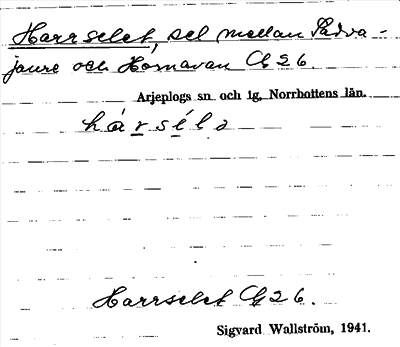 Harrselet, sel mellan Sädva-
jaure och Hornavan Cg 26.
Arjeplogs sn och tg, Norrbottens län.
Harrselet Cg 26.
Sigvard Wallström, 1941.